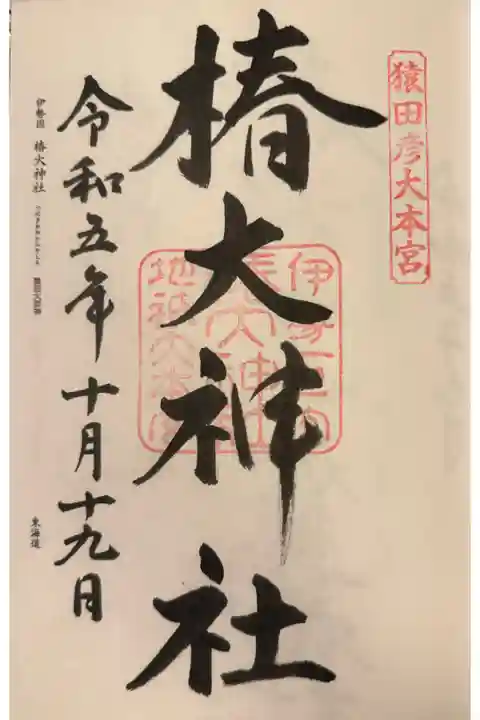 猿田彦大本宮
椿大神社
伊勢一宮
地祇大本宮
令和五年十月十九日
伊勢国 椿大神社
東海道